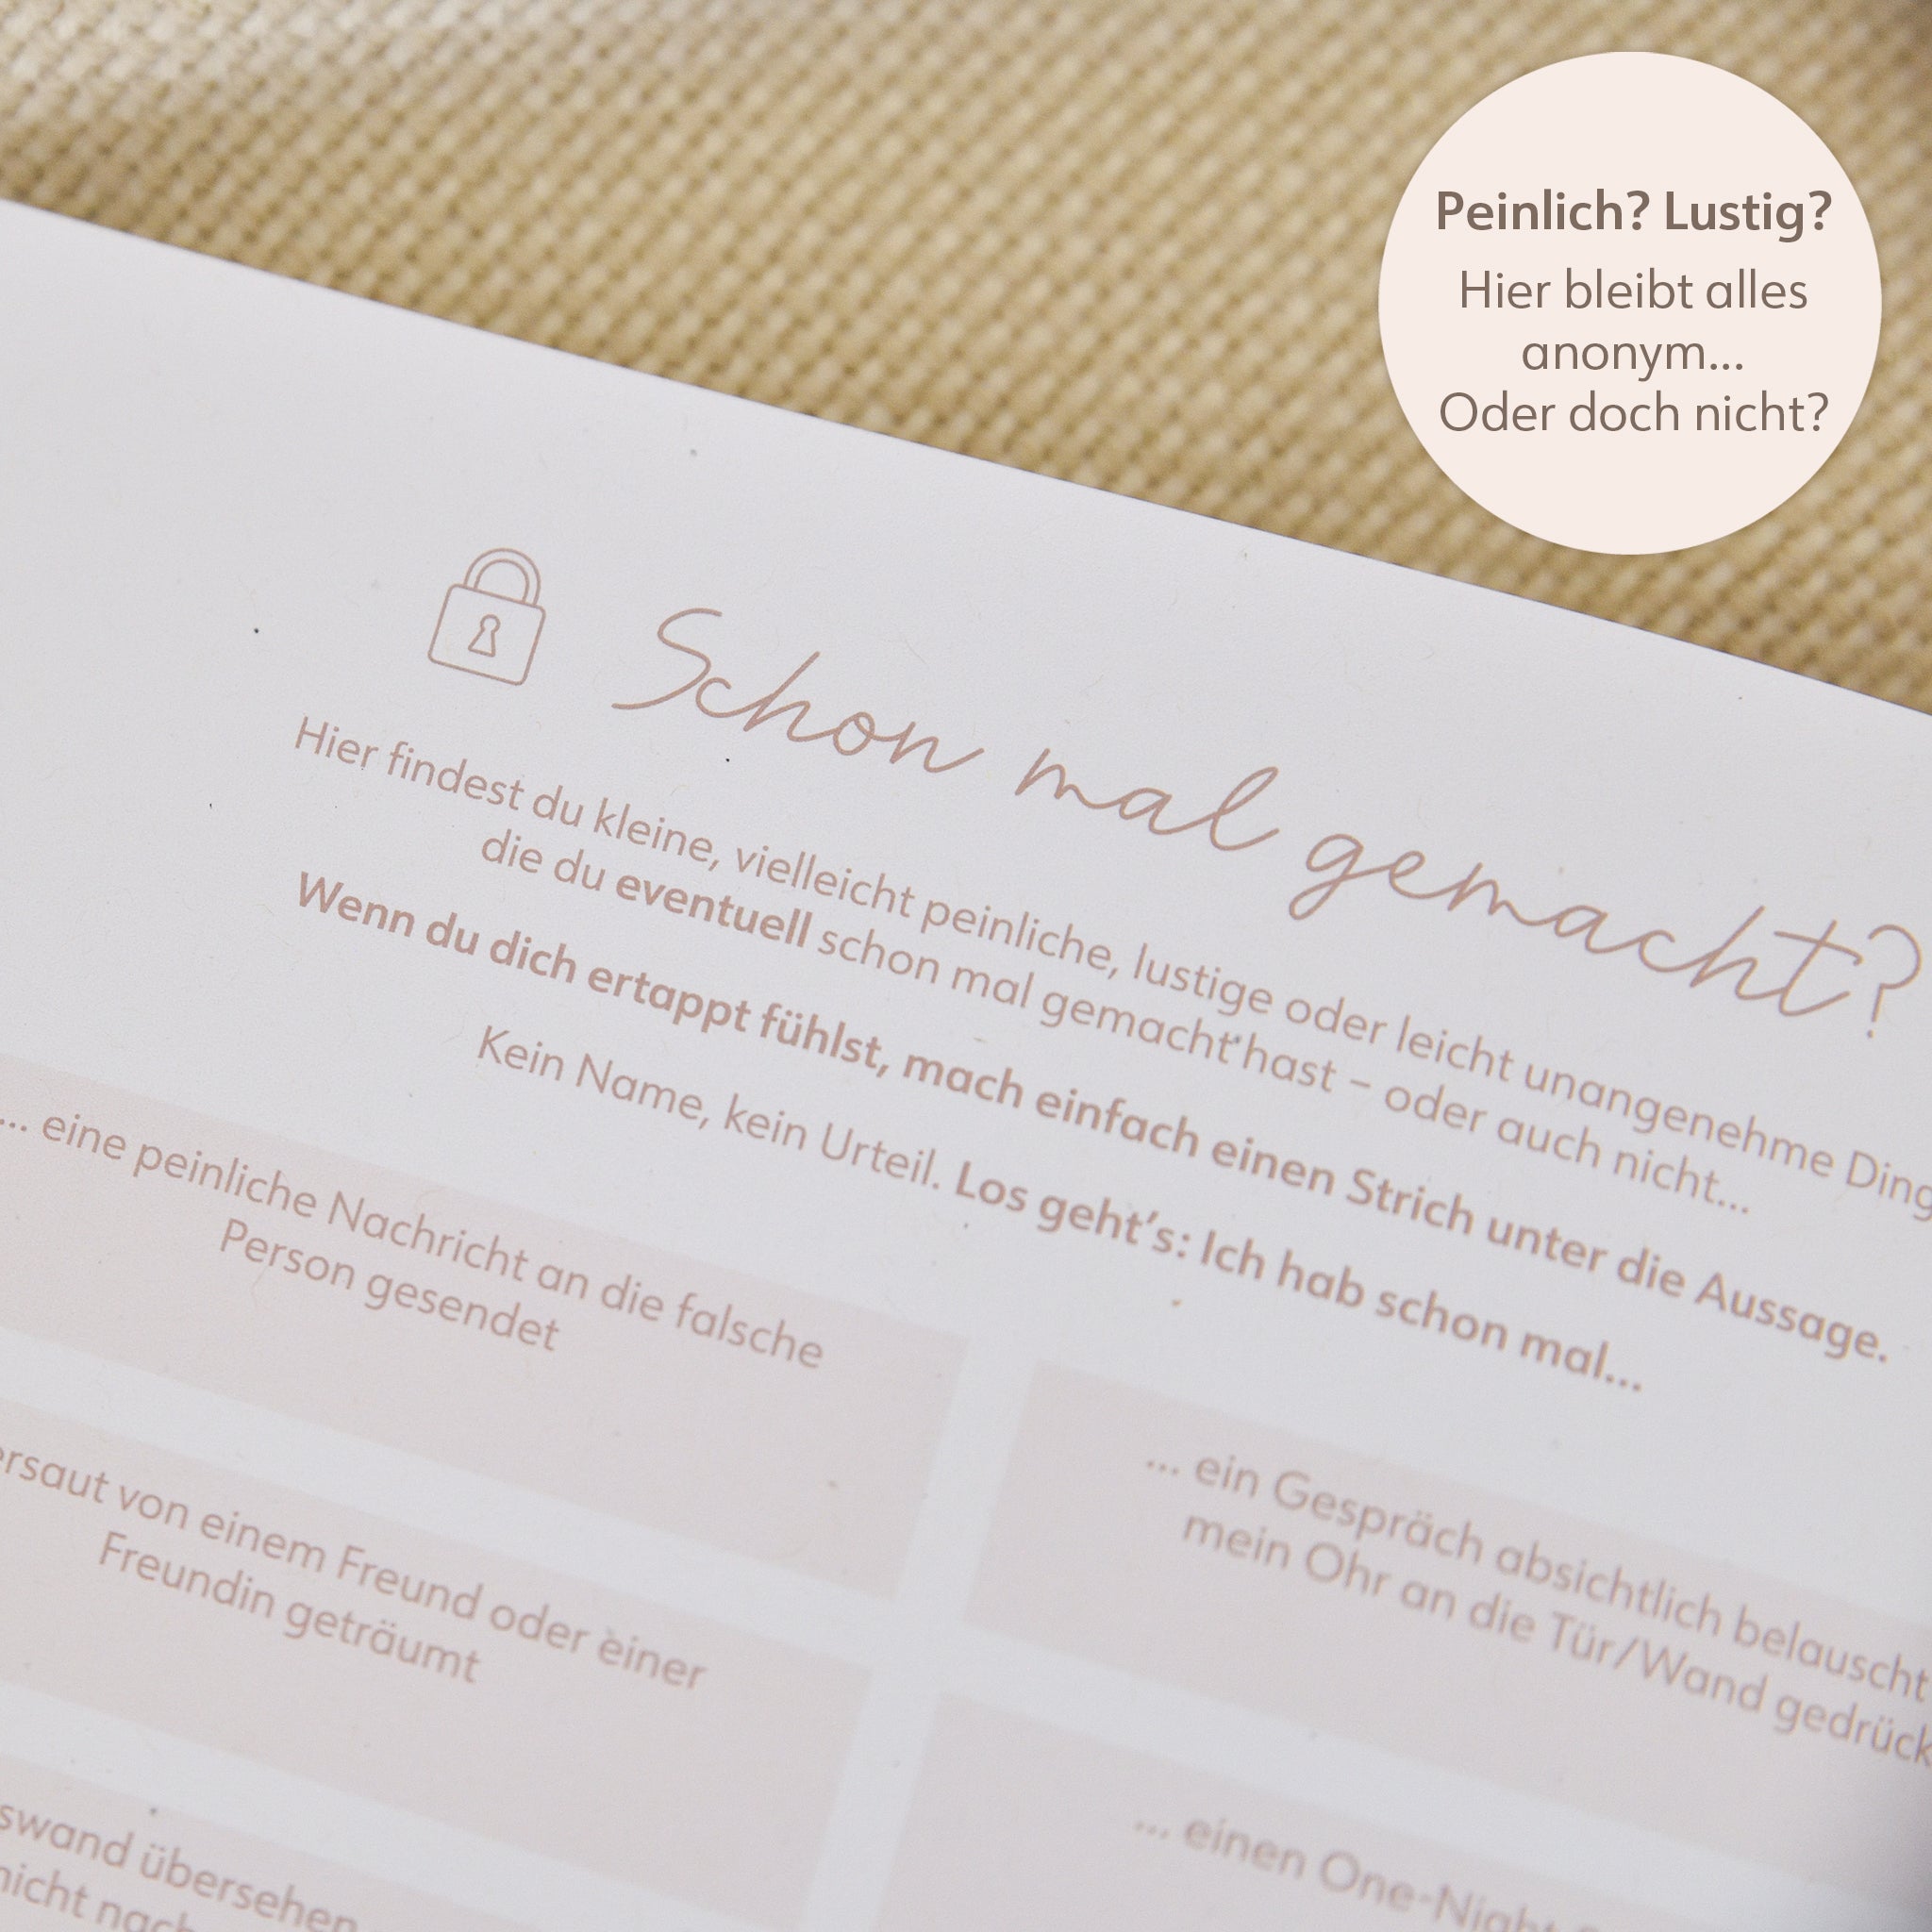 Peinlich? Lustig?
Hier bleibt alles
anonym...
Oder doch nicht?
Schon mal gemacht?
Hier findest du kleine, vielleicht peinliche, lustige oder leicht unangenehme Ding
die du eventuell schon mal gemacht hast – oder auch nicht...
Wenn du dich ertappt fühlst, mach einfach einen Strich unter die Aussage.
Kein Name, kein Urteil. Los geht's: Ich hab schon mal...
... eine peinliche Nachricht an die falsche
Person gesendet
... ein Gespräch absichtlich belauscht
mein Ohr an die Tür/Wand gedrück
ersaut von einem Freund oder einer
Freundin geträumt
... einen One-Night
swand übersehen
nicht nach